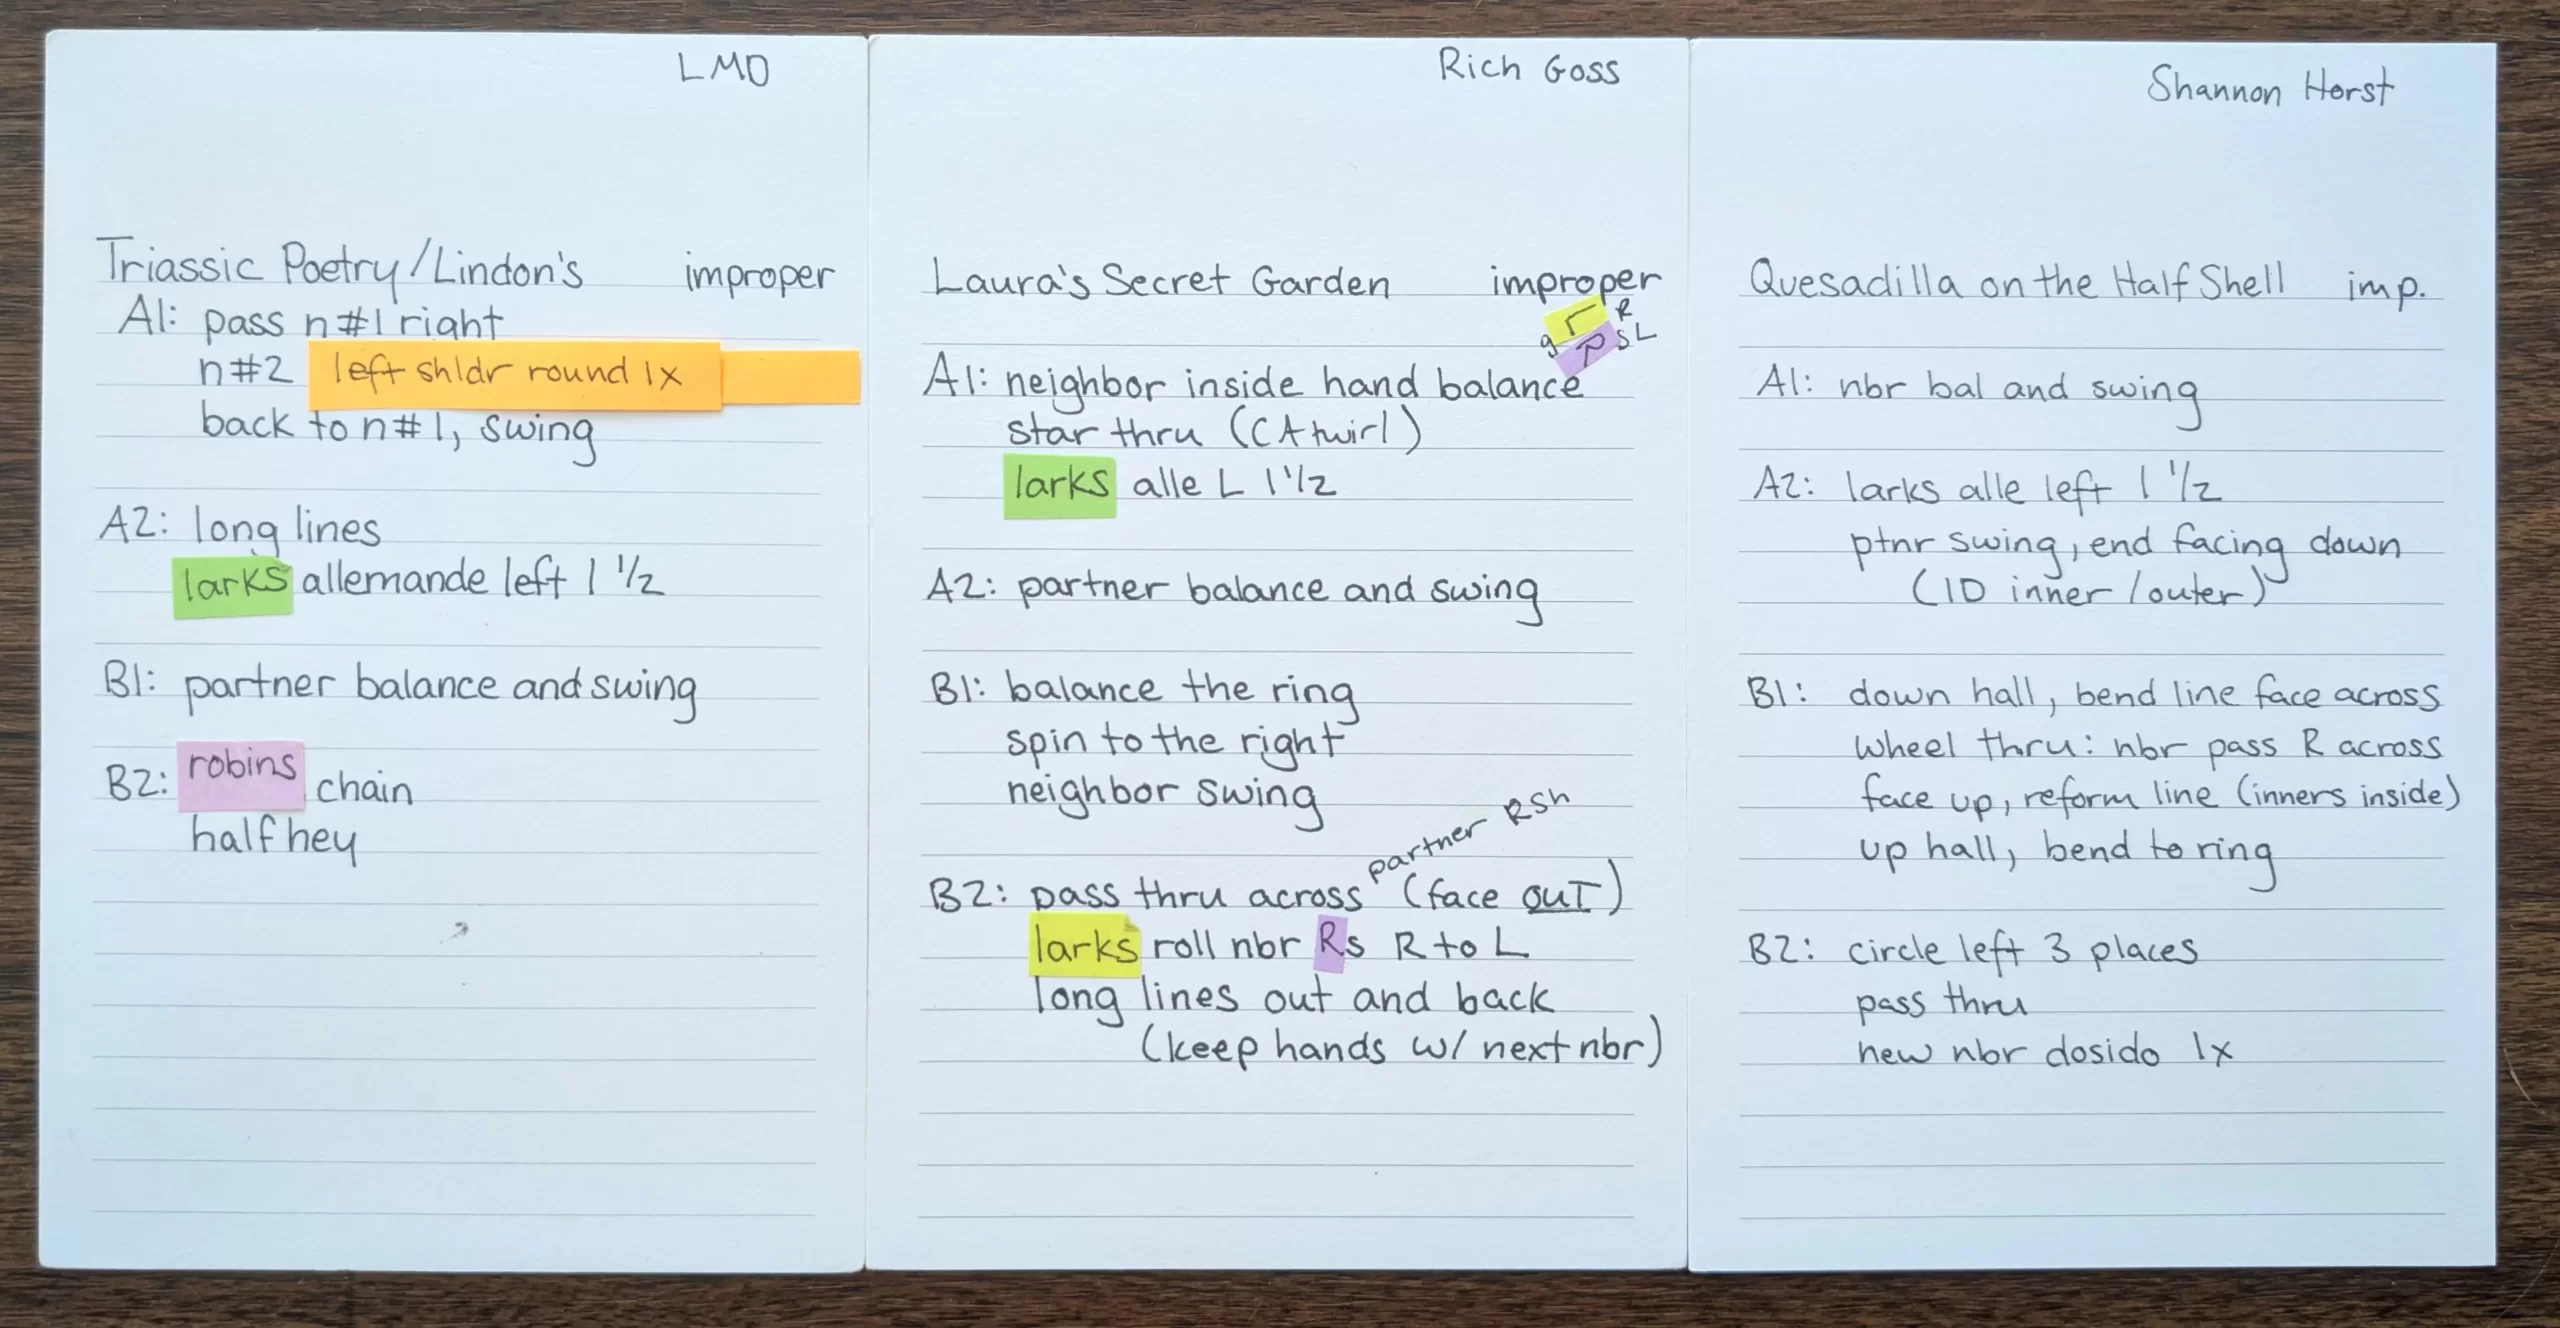 LMO
Triassic Poetry/Lindon's improper
A1: pass n#1 right
n#2 left shldr round 1x
back to n#1, swing
A2: long lines
larks allemande left 1 1/2
B1: partner balance and swing
B2: robins chain
half hey
Rich Goss
Laura's Secret Garden improper
R
s L
A1: neighbor inside hand balance
star thru (CA twirl)
larks alle L 1 1/2
A2: partner balance and swing
B1: balance the ring
spin to the right
neighbor swing
partner RSh
B2: pass thru across (face OUT)
larks roll nbr Rs R to L
long lines out and back
(keep hands w/ next nbr)
Shannon Horst
Quesadilla on the Half Shell imp.
A1: nbr bal and swing
A2: larks alle left 1 1/2
ptnr swing, end facing down
(ID inner/outer)
B1: down hall, bend line face across
wheel thru: nbr pass R across
face up, reform line (inners inside)
up hall, bend to ring
B2: circle left 3 places
pass thru
new nbr dosido 1x